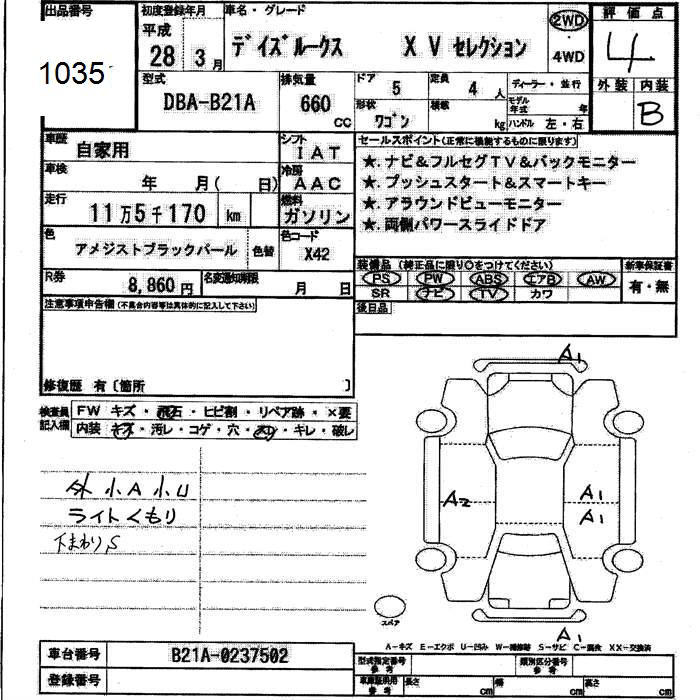 出品番号 初度登録年月 車名・グレード 評価点
1035 平成 28 3月 デイズルークス XV セレクション 2WD ・ 4WD 4
型式 排気量 ドア 5 定員 4 人 ディーラー・並行 外装 内装
DBA-B21A 660 CC 形状 ワゴン 積載 kg モデル年式 年 B
ハンドル 左・右
車歴 自家用 シフト IAT セールスポイント(正常に機能するものに限ります)
車検 年 月( 日) 冷房 AAC ★.ナビ&フルセグTV&バックモニター
★.プッシュスタート&スマートキー
走行 11万5千170 km 燃料 ガソリン ★.アラウンドビューモニター
★.両側パワースライドドア
色 アメジストブラックパール 色替 色コード X42
装備品(純正品に限り○をつけてください) 新車保証書
R券 8,860円 名変通知期限 月 日 PS PW ABS エアB AW 有・無
SR ナビ TV カワ
注意事項申告欄(不具合内容等は具体的に記入して下さい) 後日品
修復歴 有〔箇所 〕
検査員記入欄 FW キズ・飛石・ヒビ割・リペア跡・×要
内装 キズ・汚レ・コゲ・穴・スレ・キレ・破レ
外 小A 小U
ライトくもり
下まわりS
A1
A2 A1
A1
スペア
A1
A-キズ E-エクボ U-凹み W-補修跡 S-サビ C-腐食 XX-交換済
車台番号 B21A-0237502 型式指定番号 参考 類別区分番号 参考
登録番号 車庫証明用 参考 長さ cm 幅 cm 高さ cm